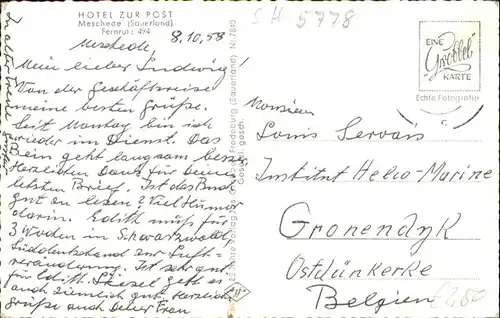 HOTEL ZUR POST
Meschede (Sauerland)
Fernruf: 494
Meschede, 8.10.58
Mein lieber Ludwig!
Von der Geschäftsreise
meine besten Grüße.
Seit Montag bin ich
wieder im Dienst. Das
Bein geht langsam besser.
Herzlichen Dank für Deinen
letzten Brief. Ist das Buch
gut zu lesen? Viel Humor
darin. Edith muß für
3 Wochen in Schwarzwald
Süddeutschland zur Luft-
veränderung. Ist sehr gut
für Edith. Sonst geht es
auch ziemlich gut. Herzliche
Grüße auch Deiner Frau
Fredeburg (Sauerland) Nr. 7843
Gesetzl. gesch.
SH 5778
EINE
Grobbel
KARTE
Echte Fotografie
Monsieur
Louis Servais
Institut Helio-Marine
Gronendyk
Ostdünkerke
Belgien